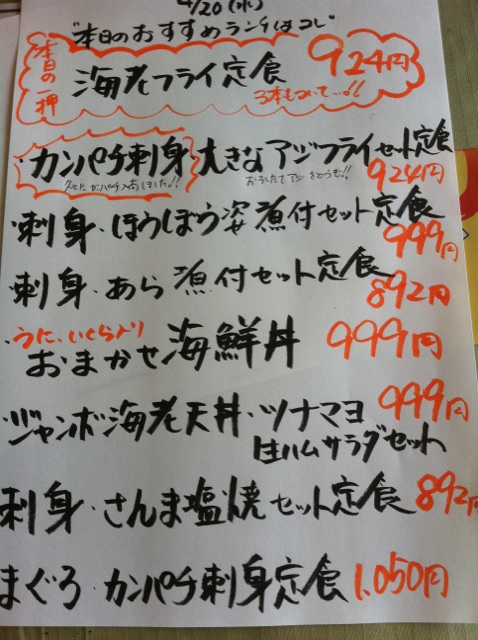 4/20(水)
"本日のおすすめランチはコレ"
本日の一押
海老フライ定食 924円
3本もついて…!!
・カンパチ刺身・大きなアジフライセット定食
久々にカンパチ入荷しました!! おろしたてアジをどうぞ!!
924円
・刺身・ほうぼう姿煮付セット定食
999円
・刺身・あら煮付セット定食
892円
・うに、いくら入り
おまかせ海鮮丼 999円
・ジャンボ海老天丼・ツナマヨ 999円
生ハムサラダセット
刺身・さんま塩焼セット定食 892円
まぐろ・カンパチ刺身定食 1,050円